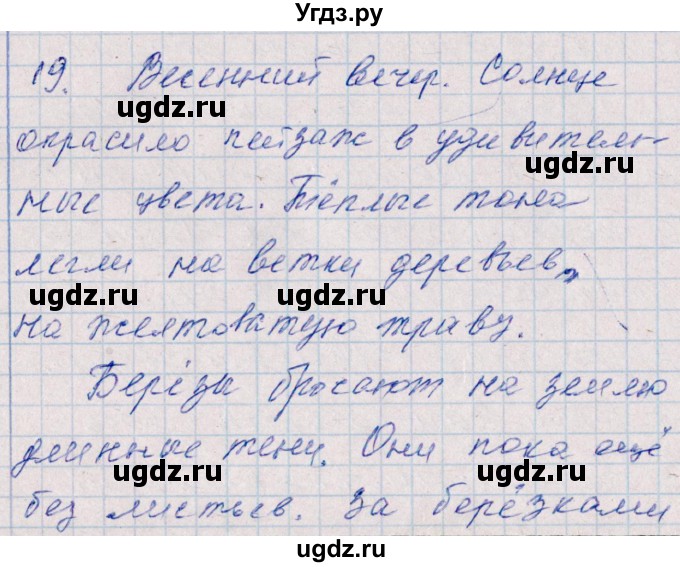 Угдз.ру
19. Весенний вечер. Солнце
ugdz.ru
окрасило пейзаж в удивитель-
ugdz.ru
ugdz.ru
ные цвета. Тёплые тона
легли на ветки деревьев,
ugdz.ru
ugdz.ru
на желтоватую траву.
Берёзы бросают на землю
ugdz.ru
длинные тени. Они пока ещё
ugdz.ru
ugdz.ru
без листьев. За берёзками
ugdz.ru